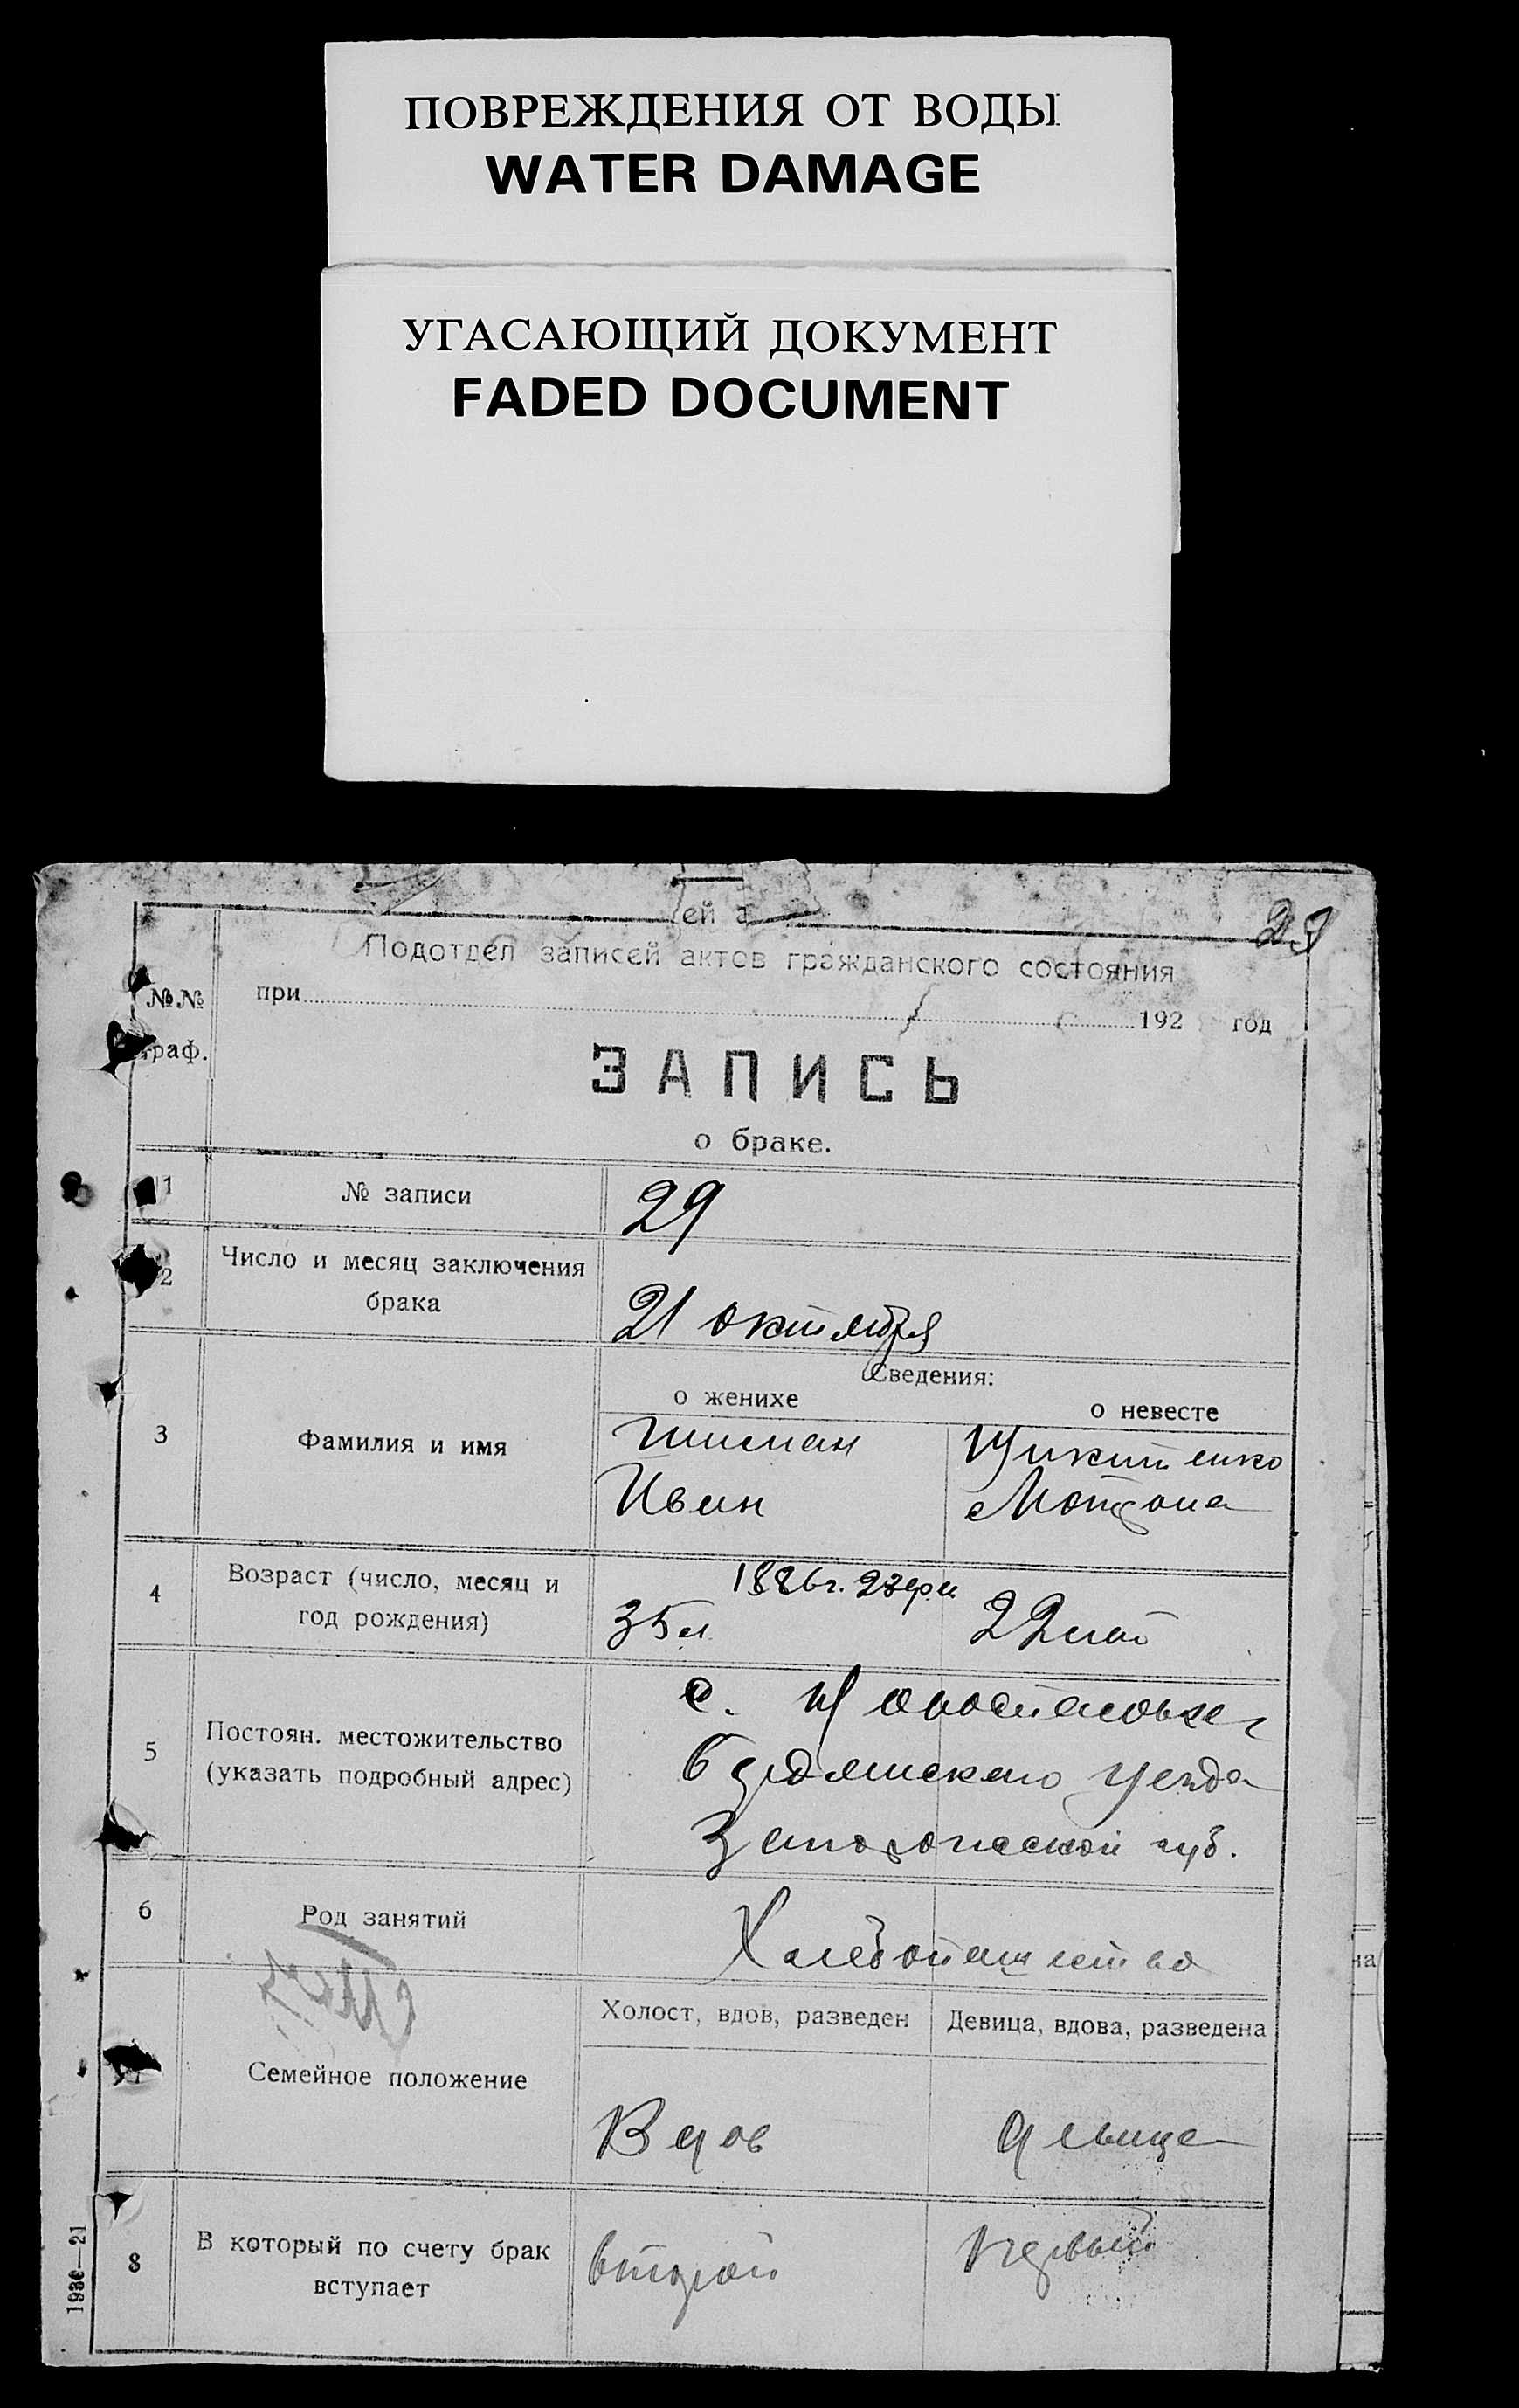 ПОВРЕЖДЕНИЯ ОТ ВОДЫ
WATER DAMAGE
УГАСАЮЩИЙ ДОКУМЕНТ
FADED DOCUMENT
ей
Подотдел записей актов гражданского состояния
№№
граф.
при 192 год
ЗАПИСЬ
о браке.
1 № записи 29
2 Число и месяц заключения
брака
21 октября
Сведения:
о женихе о невесте
3 Фамилия и имя
Никитенко
Иван Мотрона
4 Возраст (число, месяц и
год рождения)
1886г.
35 л 22 лет
5 Постоян. местожительство
(указать подробный адрес)
с.
Бердянского уезда
Запорожской губ.
6 Род занятий
Хлебопашество
Холост, вдов, разведен Девица, вдова, разведена
Семейное положение
Вдов девица
8 В который по счету брак
вступает
второй первый
21
на